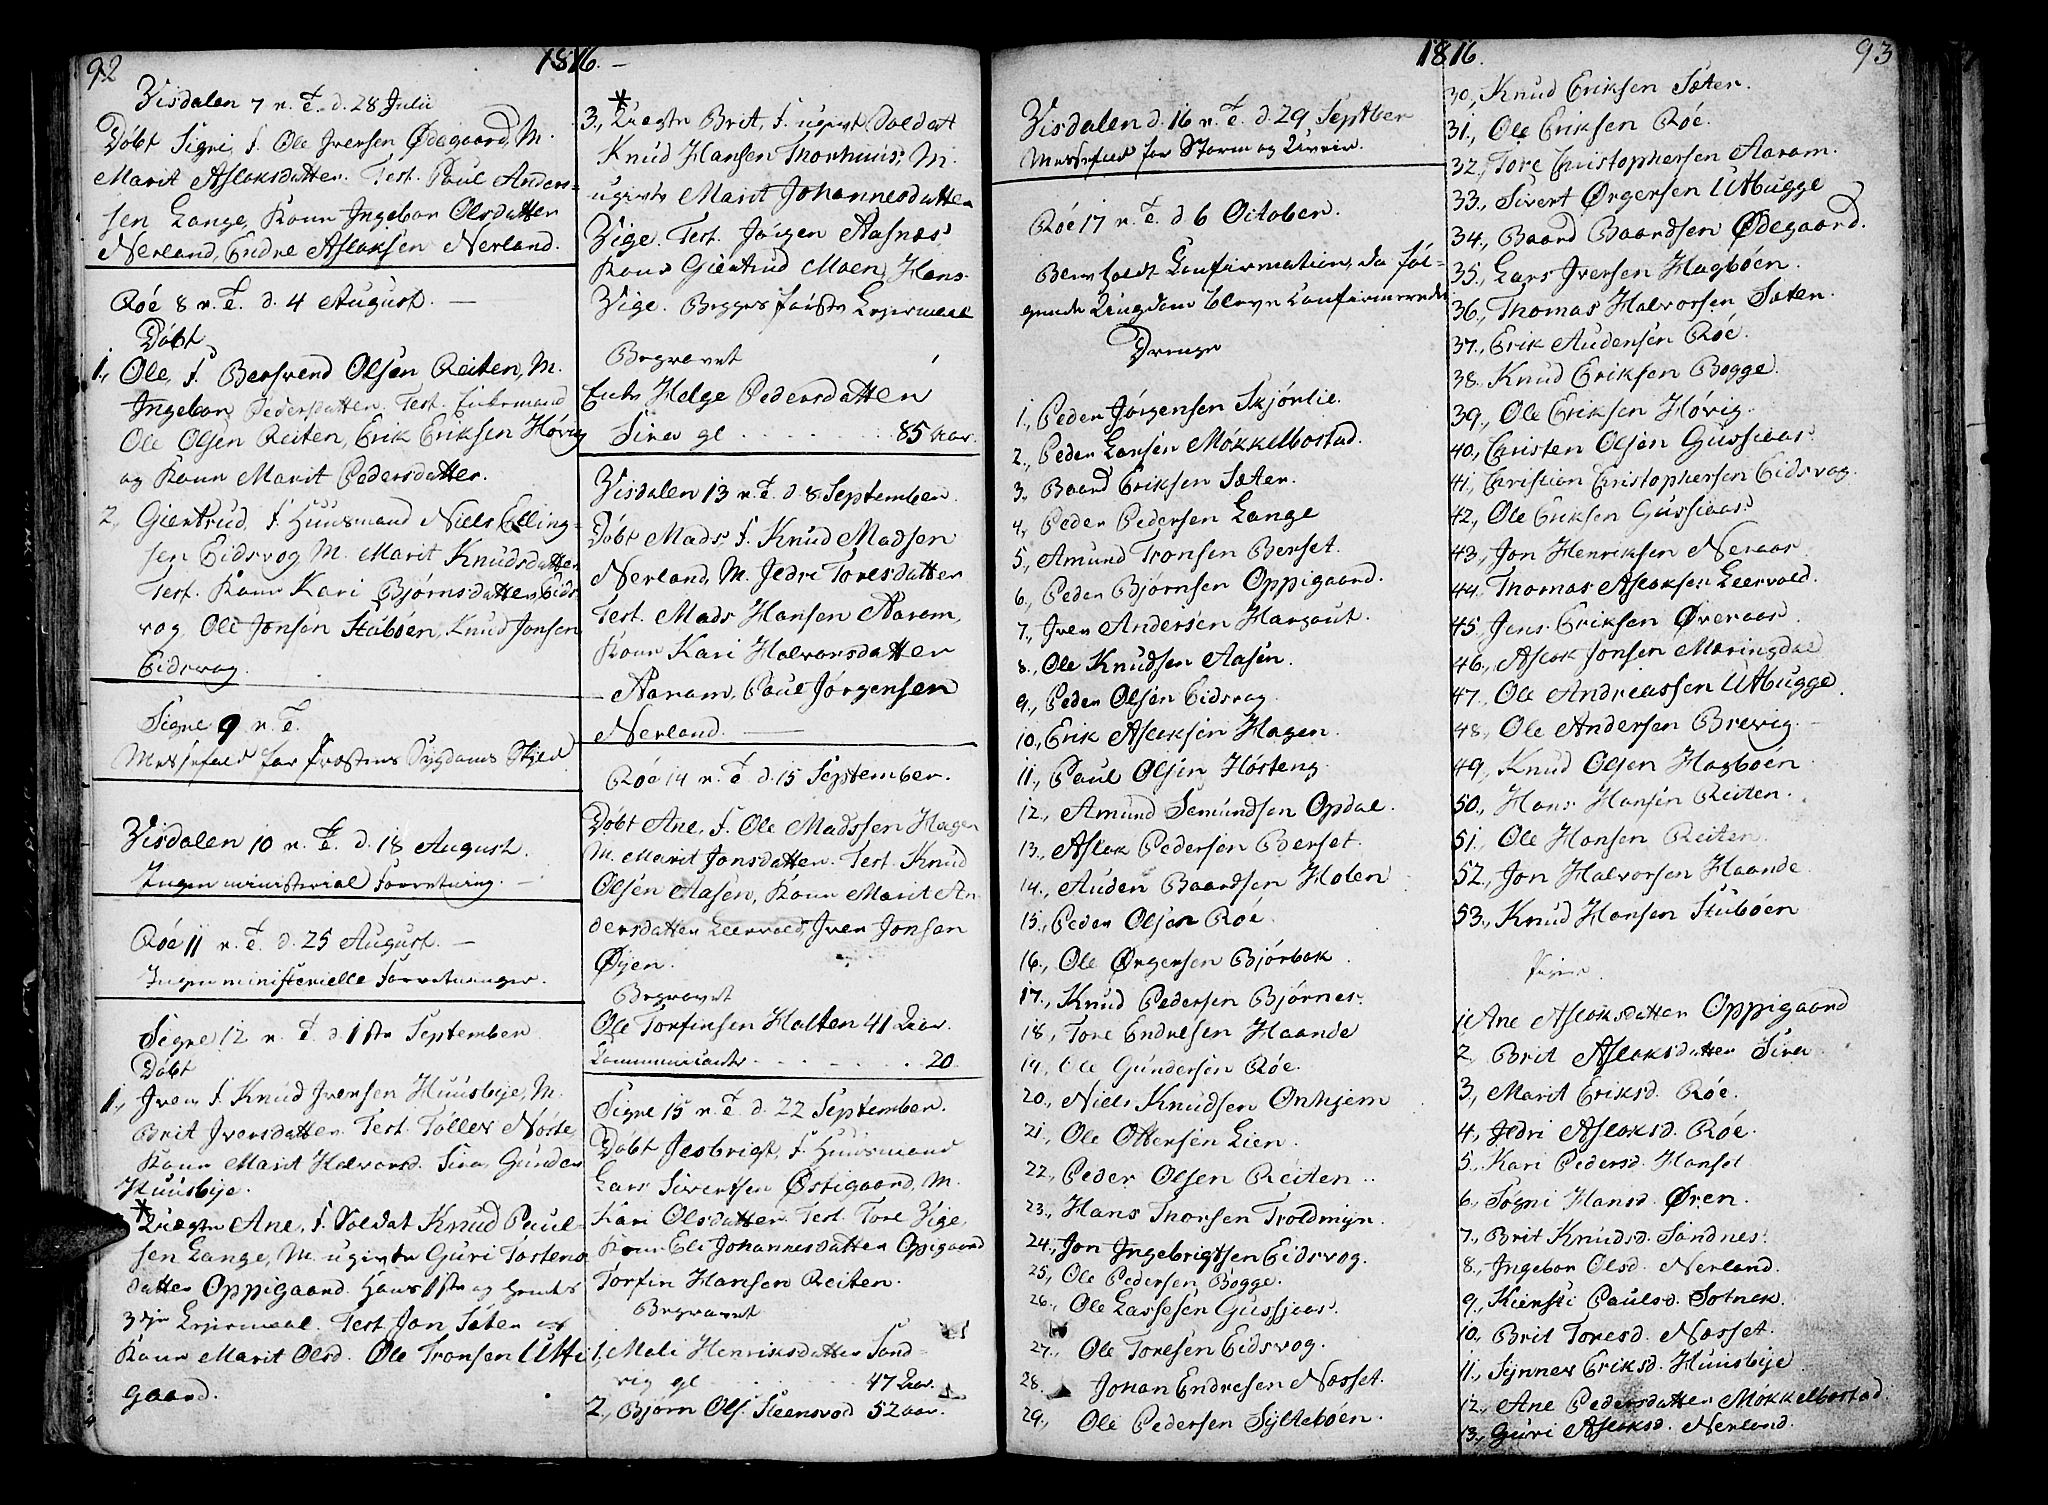 92
1816.
Visdalen 7 n. T. d. 28 Julii
Døbt Sigri, F. Ole Iversen Ødegaard, M.
Marit Aslaksdatter. Test. Paul Ander-
sen Lange, Kone Ingebor Olsdatter
Nerland, Endre Aslaksen Nerland.
Røe 8 n. T. d. 4 August. —
Døbt
1., Ole, F. Bersvend Olsen Reiten, M.
Ingebor Pedersdatter. Test. Enkemand
Ole Olsen Reiten, Erik Eriksen Høvig
og Kone Marit Pedersdatter.
2., Giertrud, F. Huusmand Niels Elling-
sen Eidsvog M. Marit Knudsdatter
Test. Kone Kari Bjørnsdatter Eids-
vog, Ole Jonsen Stubøen, Knud Jonsen
Eidsvog.
Signe 9 n. T.
Messefald for Præstens Sygdoms Skyld
Visdalen 10 n. T. d. 18 August.
Ingen ministerial Forretning. —
Røe 11 n. T. d. 25 August. —
Ingen ministerielle Forretninger.
Signe 12 n. T. d. 1ste September
Døbt
1., Iver, F. Knud Iversen Huusbye, M.
Brit Iversdatter. Test. Tollev Nøste,
Kone Marit Halvorsd. Sira, Gunder
Huusbye.
* Uægte Ane, F. Soldat Knud Paul-
sen Lange, M. ugivte Guri Tostens
datter Oppigaard. Hans 1ste og hendes
3die Leiermaal. Test. Jon Sæter og
Kone Marit Olsd. Ole Tronsen Utti
gaard.
3., * Uægte Brit, F. ugivt Soldat
Knud Hansen Thorhuus, M.
ugivte Marit Johannesdatter
Vige. Test. Jørgen Aasnæs
Kone Giertrud Moen, Hans
Vige. Begges første Leiermaal
Begravet
Enke Helge Pedersdatter
Sira gl . . . . . 85 Aar.
Visdalen 13 n. T. d. 8 September.
Døbt Mads, F. Knud Madsen
Nerland, M. Jedri Toresdatter
Test. Mads Hansen Aaram,
Kone Kari Halvorsdatter
Aaram, Paul Jørgensen
Nerland. —
Røe 14 n. T. d. 15 September.
Døbt Ane, F. Ole Madssen Hagen
M. Marit Jonsdatter. Test. Knud
Olsen Aasen, Kone Marit An-
dersdatter Leervold, Iver Jonsen
Øjen.
Begravet
Ole Torfinsen Halten 41 Aar.
Communicanter . . . . . 20.
Signe 15 n. T. d. 22 September.
Døbt Jesbrigt, F. Huusmand
Lars Sivertsen Østigaard, M.
Kari Olsdatter. Test. Tore Vige,
Kone Eli Johannesdatter Oppigaard
Torfin Hansen Reiten.
Begravet
1., Mali Henriksdatter Sand-
vig gl . . . . . 47 Aar.
2., Bjørn Ols. Steensvod 52 aar.
1816.
93
Visdalen d. 16 n. T. d. 29 Septber
Messefald for Storm og Uveir.
Røe 17 n. T. d 6 October.
Beenholdt Confirmation, da føl-
gende Ungdom bleve confirmerede
Drenge
1., Peder Jørgensen Skjørlie.
2., Peder Larsen Møkkelbostad.
3., Baard Eriksen Sæter.
4., Peder Pedersen Lange
5., Amund Tronsen Berset.
6., Peder Bjørnsen Oppigaard.
7., Iver Andersen Hargout.
8., Ole Knudsen Aasen.
9., Peder Olsen Eidsvog
10., Erik Aslaksen Hagen.
11., Paul Olsen Høsteng.
12., Amund Semundsen Opdal.
13., Aslak Pedersen Berset.
14., Auden Baardsen Holen
15., Peder Olsen Røe.
16., Ole Ørgersen Bjørbak.
17., Knud Pedersen Bjørnes.
18., Tore Endresen Haande
19., Ole Gundersen Røe.
20., Niels Knudsen Onhjem
21., Ole Ottersen Lien.
22., Peder Olsen Reiten.
23., Hans Thorsen Troldmyn.
24., Jon Ingebrigtsen Eidsvog.
25., Ole Pedersen Bogge.
26., Ole Lassesen Gussiaas.
27., Ole Toresen Eidsvog.
28., Johan Endresen Næsset.
29., Ole Pedersen Syltebøen.
30., Knud Eriksen Sæter.
31., Ole Eriksen Røe.
32., Tore Christophersen Aaram.
33., Sivert Ørgersen Utbugge
34., Baard Baardsen Ødegaard.
35., Lars Iversen Hagbøen.
36., Thomas Halvorsen Sæter.
37., Erik Audensen Røe.
38., Knud Eriksen Bogge.
39., Ole Eriksen Høvig.
40., Christen Olsen Gussiaas.
41., Christian Christophersen Eidsvog.
42., Ole Eriksen Gussiaas.
43., Jon Henriksen Neraas.
44., Thomas Aslaksen Leervold.
45., Jens Eriksen Øveraas.
46., Aslak Jonsen Meringdal
47., Ole Andreassen Utbugge.
48., Ole Andersen Brevig.
49., Knud Olsen Hagbøen.
50., Hans Hansen Reiten.
51., Ole Hansen Reiten
52., Jon Halvorsen Haande.
53., Knud Hansen Stubøen
Piger.
1., Ane Aslaksdatter Oppigaard
2., Brit Aslaksdatter Sira
3., Marit Eriksd. Røe.
4., Jedri Aslaksd. Røe.
5., Kari Pedersd. Hanset
6., Sogni Hansd. Øren.
7., Brit Knudsd. Sandnes.
8., Ingebor Olsd. Nerland.
9., Kiersti Paulsd. Sotnak.
10., Brit Toresd. Næsset.
11., Synnev Eriksd. Huusbye.
12., Ane Pedersdatter Møkkelbostad.
13., Guri Aslaksd. Nerland.